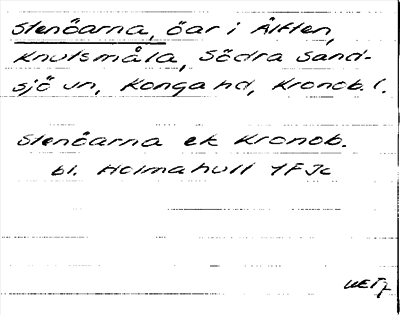 Stenöarna, öar i Älften,
Knutsmåla, Södra Sand-
sjö un, Konga hd, Kronob. l.
Stenöarna ek Kronob.
bl. Holmahult 1F Jc